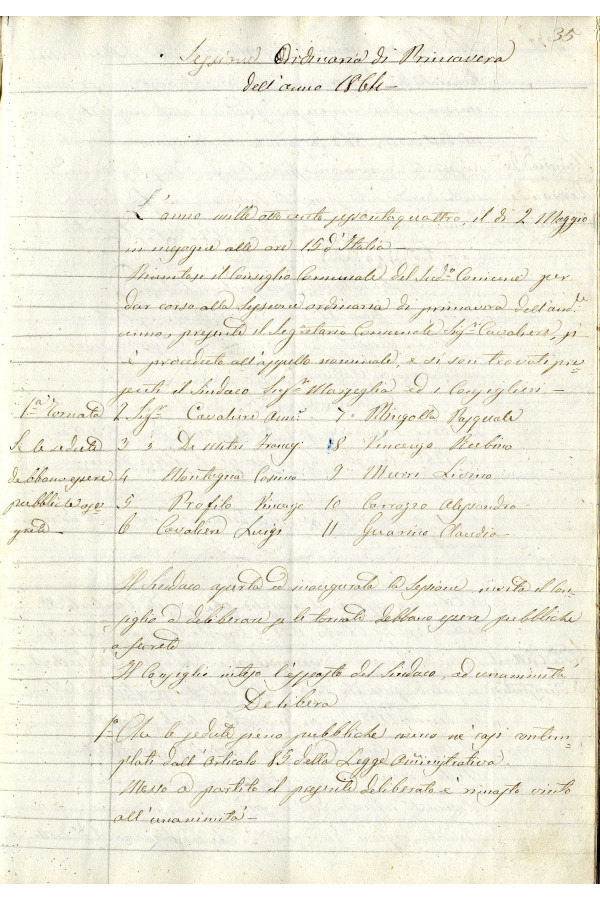 35
Sessione Ordinaria di Primavera
dell'anno 1864
L'anno mille otto cento sessantaquattro, il dì 2 Maggio
in Mesagne alle ore 15 d'Italia —
Riunitosi il Consiglio Comunale del sud.º Comune per
dar corso alla sessione ordinaria di primavera dell'and.te
anno, presente il Segretario Comunale Sig.r Cavaliere, si
è proceduto all'appello nominale, e si son trovati pre=
senti il Sindaco Sig.r Marzeglia ed i Consiglieri —
1.ª Tornata
Se le sedute
debbano essere
pubbliche o se=
grete
2 Sig.r Cavaliere 7 Mingolla Pasquale
3 " De Mitri Franc. 8 Vincenzo Rubino
4 Montegna Cosimo 9 Murri Livino
5 Profilo Vincenzo 10 Carrozzo Alessandro
6 Cavaliere Luigi 11 Guarino Claudio
Il Sindaco aperta ed inaugurata la Sessione invita il Con=
siglio a deliberare se le tornate debbano essere pubbliche
o secrete
Il Consiglio inteso l'esposto del Sindaco, ad unanimità
Delibera
1º Che le sedute sieno pubbliche meno ne' casi contem=
plati dall'Articolo 85 della Legge Amministrativa.
Messo a partito il presente deliberato è rimasto vinto
all'unanimità —